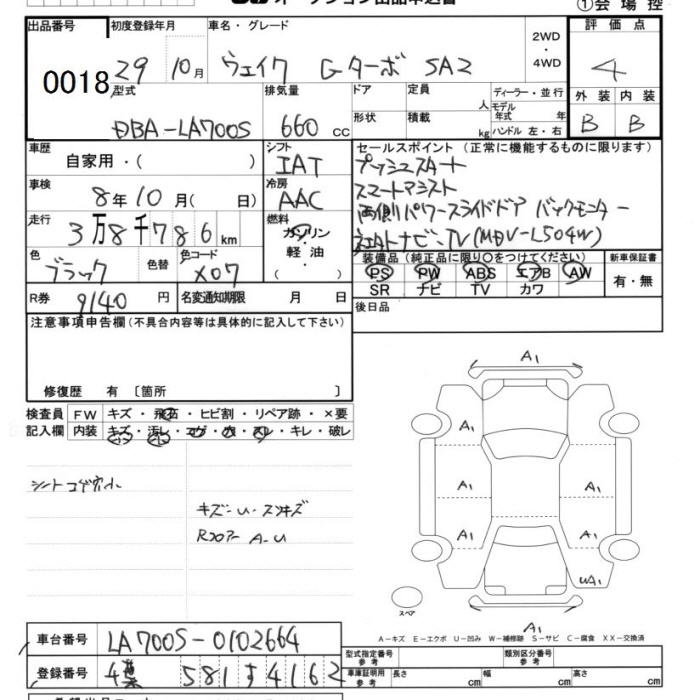 ①会場控
出品番号 初度登録年月 車名・グレード 2WD ・ 4WD 評価点
0018 29 10月 ウェイク Gターボ SA2 4
型式 排気量 ドア 定員 人 ディーラー・並行 外装 内装
DBA-LA700S 660 cc 形状 積載 kg モデル年式 年 ハンドル 左・右 B B
車歴 自家用・( ) シフト IAT セールスポイント (正常に機能するものに限ります)
プッシュスタート
車検 8年10月( 日) 冷房 AAC スマートアシスト
両側パワースライドドア バックモニター
走行 3万8千786km 燃料 ガソリン・軽油・( )
ナビ、TV(MDV-L504W)
色 ブラック 色替 色コード X07 装備品 (純正品に限り○をつけてください) 新車保証書
PS PW ABS エアB AW 有・無
SR ナビ TV カワ
R券 9140円 名変通知期限 月 日 後日品
注意事項申告欄(不具合内容等は具体的に記入して下さい)
修復歴 有 〔箇所 〕
検査員記入欄 FW キズ・飛石・ヒビ割・リペア跡・×要
内装 キズ・汚レ・コゲ・穴・スレ・キレ・破レ
シートコゲ穴小
キズ-U-スリキズ
Rコアー A-U
A1
A1 A1
A1 A1
UA1
A1
スペア
A-キズ E-エクボ U-凹み W-補修跡 S-サビ C-腐食 XX-交換済
車台番号 LA700S-0102664
型式指定番号 参考 類別区分番号 参考
登録番号 千葉 581 す 4162
車庫証明用 参考 長さ cm 幅 cm 高さ cm